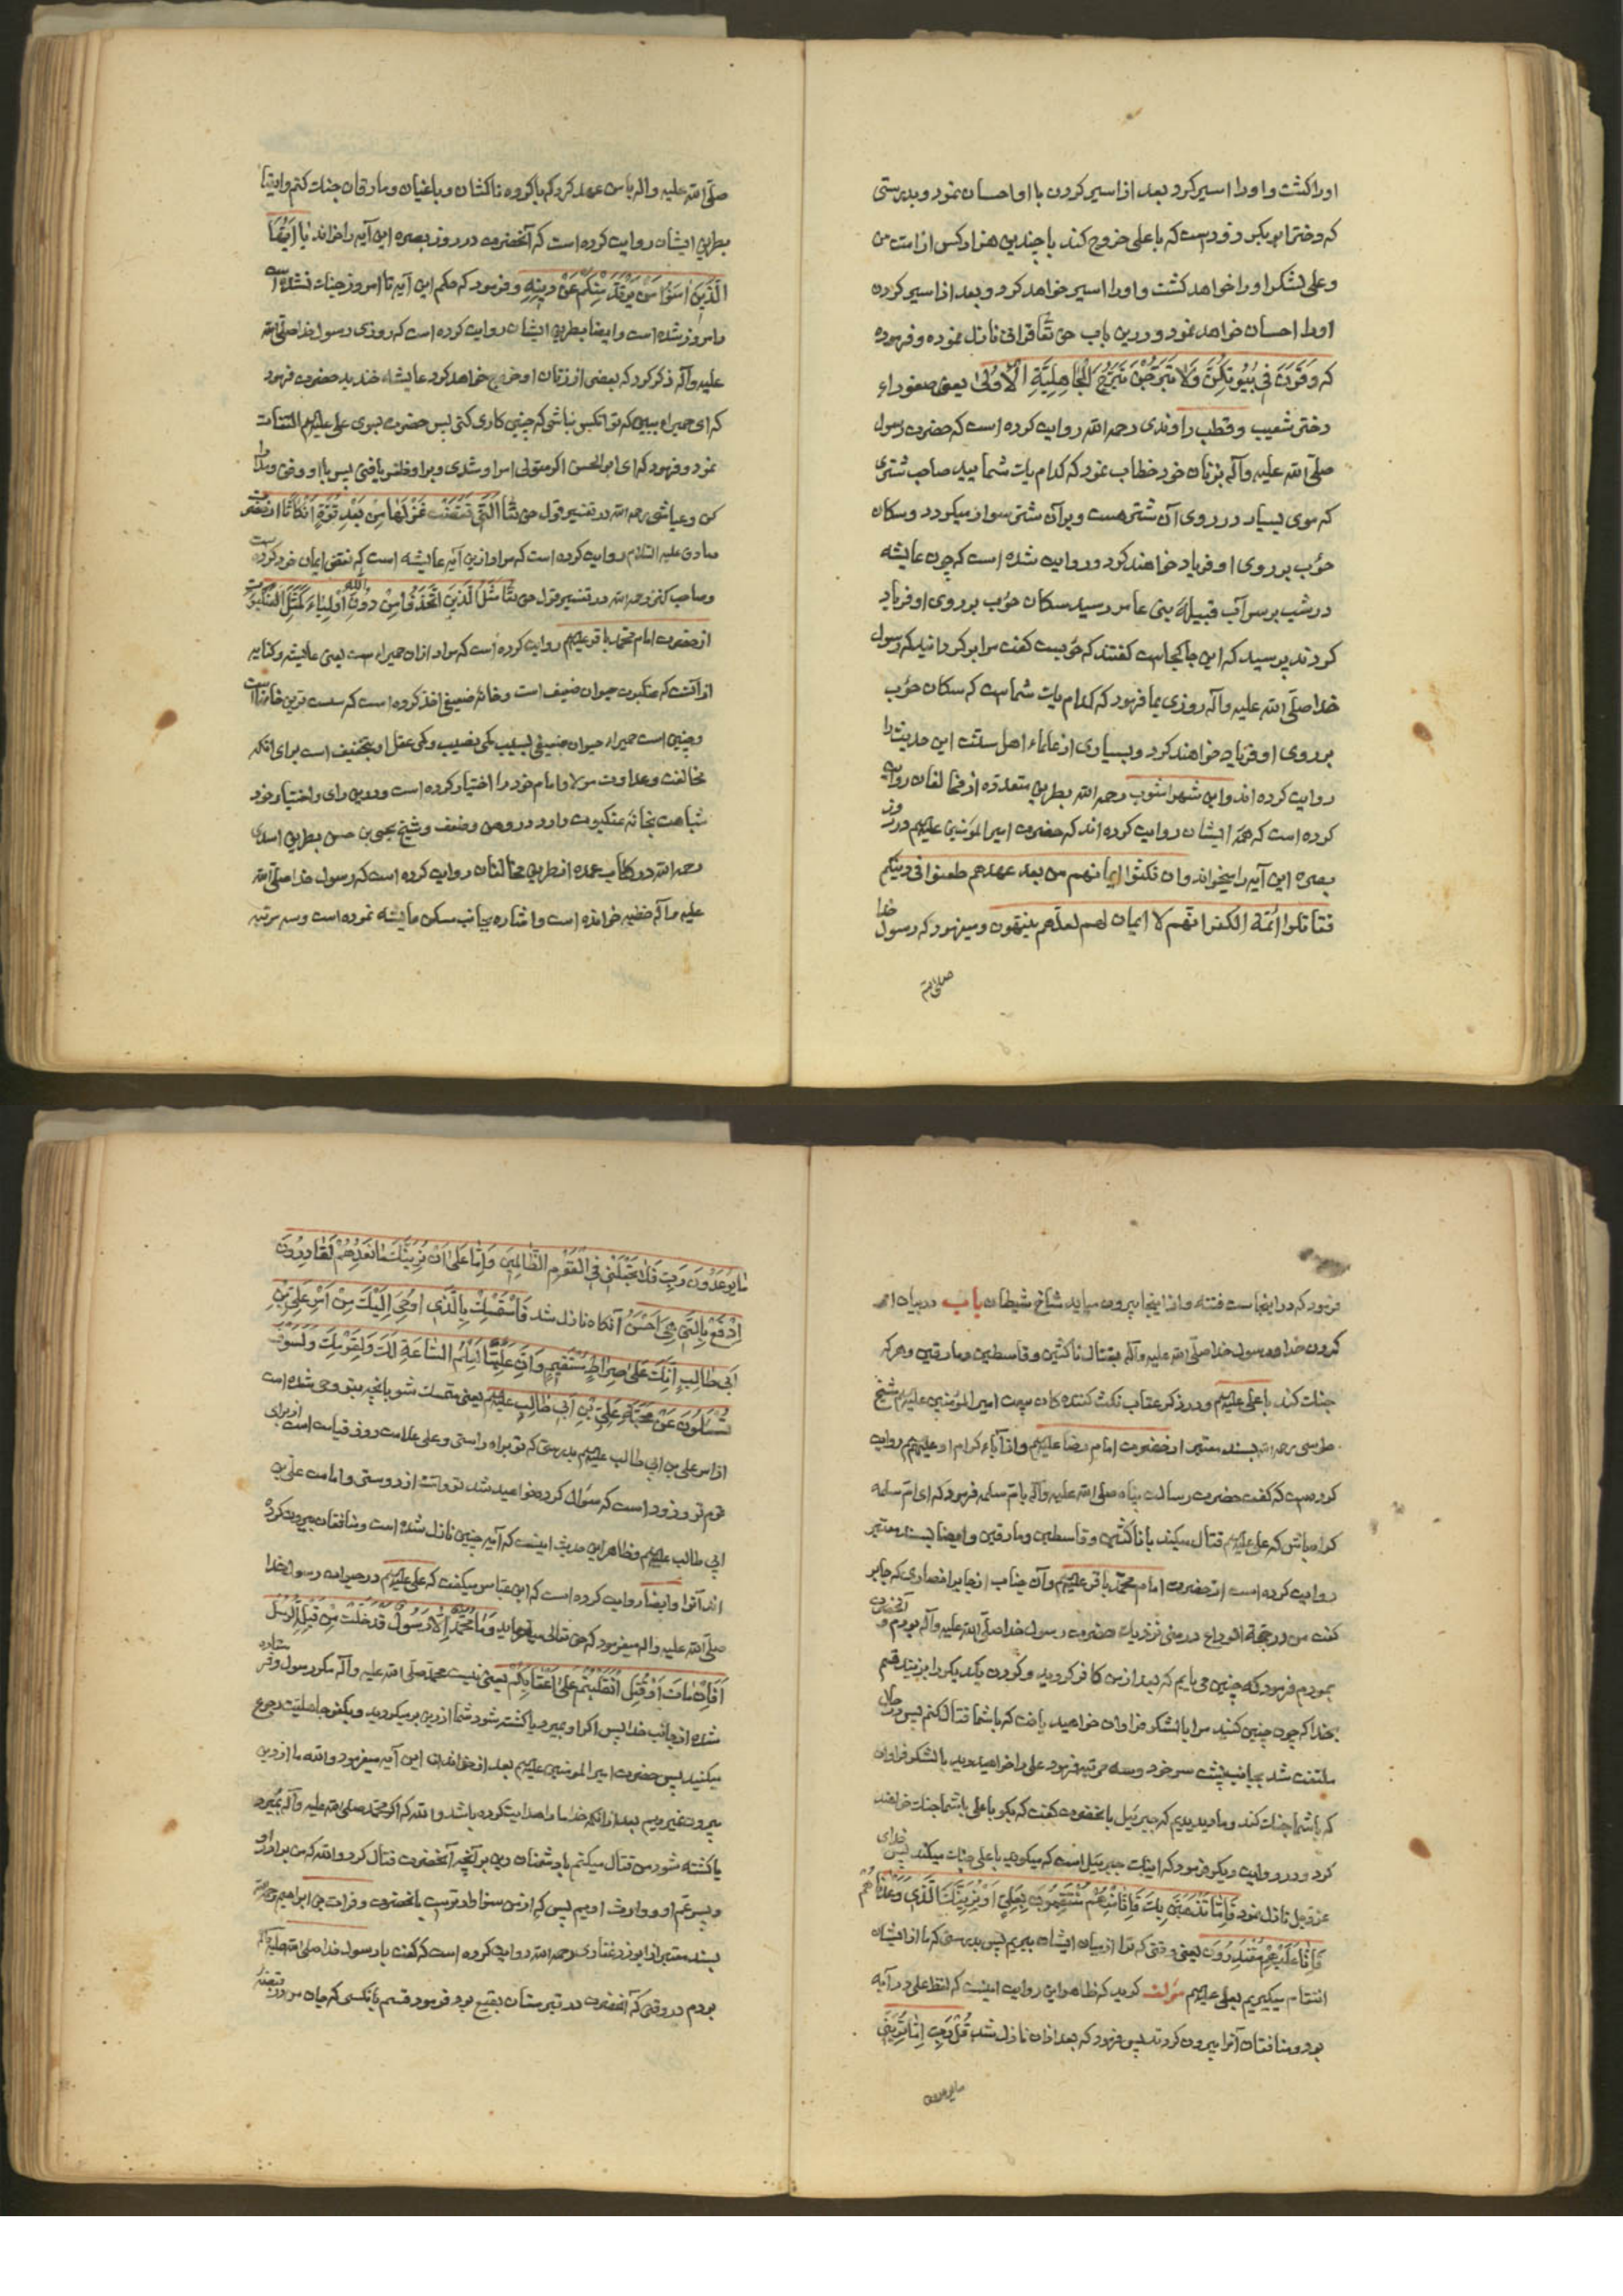 اورا کشت و اورا اسیر کرد بعد از اسیر کردن با او احسان نمود و بدرستی
که دختر ابو بکر زود است که با علی خروج کند با چندین هزار کس از امت من
و علی لشکر اورا خواهد کشت و اورا اسیر خواهد کرد و بعد از اسیر کردن
اورا احسان خواهد نمود و درین باب حق تعا قرانی نازل نموده و فرموده
که وَقَرْنَ فِی بُیُوتِکُنَّ وَلَا تَبَرَّجْنَ تَبَرُّجَ الْجَاهِلِیَّةِ الْأُولَیٰ یعنی صفوراء
دختر شعیب و قطب راوندی رحمه الله روایت کرده است که حضرت رسول
صلّی الله علیه وآله بزنان خود خطاب نمود که کدام یک شمایید صاحب شتری
که موی بسیار در روی آن شتر هست و بر آن شتر سوار میگردد و سکان
حوب بر روی او فریاد خواهند کرد و روایت شده است که چون عایشه
در شب بر سر آب قبیلهٔ بنی عامر رسید سکان حوب بر روی او فریاد
کردند پرسید که این جا کجاست گفتند که حوبست گفت مرا برگردانید که رسول
خدا صلّی الله علیه وآله روزی بما فرمود که کدام یک شماست که سکان حوب
بر روی او فریاد خواهند کرد و بسیاری از علماء اهل سنت این حدیث را
روایت کرده اند و ابن شهر اشوب رحمه الله بطریق متعدده از مخالفان روایت
کرده است که همهٔ ایشان روایت کرده اند که حضرت امیر المؤمنین علیهم در روز
بصره این آیه را میخواند وان نکثوا ایمانهم من بعد عهدهم طعنوا فی دینکم
فقاتلوا ائمة الکفر انهم لا ایمان لهم لعلّهم ینتهون و میفرمود که رسول خدا
صلی الله
صلّی الله علیه واله با من عهد کرد که با کروه ناکثان و باغیان و مارقان جنک کنم و ایضا
بطریق ایشان روایت کرده است که آنحضرت در روز بصره این آیه را خواند یَا اَیُّهَا
الَّذِینَ اٰمَنُوا مَنْ یَرْتَدَّ مِنْکُمْ عَنْ دِینِهِ و فرمود که حکم این آیه تا امروز جنک نشده است
و امروز شده است و ایضا بطریق ایشان روایت کرده است که روزی رسول خدا صلی الله
علیه وآله ذکر کرد که بعضی از زنان او خروج خواهد کرد عایشه خندید حضرت فرمود
که ای حمیراء ببین که تو آنکس نباشی که چنین کاری کنی پس حضرت بسوی علی علیهم التفات
نمود و فرمود که ای ابو الحسن اکر متولی امر او شدی و بر او ظفر یافتی پس با او رفق و مدارا
کن و عیاشی رحمه الله در تفسیر قول حق تعا الَّتِی نَقَضَتْ غَزْلَهَا مِنْ بَعْدِ قُوَّةٍ أَنْکَاثًا از حضرت
صادق علیه السّلام روایت کرده است که مراد ازین آیه عایشه است که نقض ایمان خود کرده است
و صاحب کنز رحمه الله در تفسیر قول حق تعا مَثَلُ الَّذِینَ اتَّخَذُوا مِنْ دُونِ اللّٰهِ اَوْلِیَاءَ کَمَثَلِ الْعَنْکَبُوتِ
از حضرت امام محمّد باقر علیهم روایت کرده است که مراد ازان حمیراء ست یعنی عایشه و کنایه
از آنست که عنکبوت حیوان ضعیف است و خانهٔ ضعیفی اخذ کرده است که سست ترین خانهاست
و چنین است حمیراء حیوان ضعیفی بسبب کمی نصیب و کمی عقل او بتخفیف است برای آنکه
مخالفت و عداوت مولا و امام خود را اختیار کرده است و درین رای و اختیار خود
شباهت بخانهٔ عنکبوت دارد در وهن و ضعف و شیخ یحیی بن حسن بطریق اسدی
رحمه الله در کتاب عمده از طریق مخالفان روایت کرده است که رسول خدا صلی الله
علیه وآله خطبه خوانده است و اشاره بجانب مسکن عایشه نموده است و سه مرتبه
فرمود که در اینجاست فتنه و از اینجا بیرون میاید شاخ شیطان باب در بیان امر
کردن خدا و رسول خدا صلّی الله علیه وآله بقتال ناکثین و قاسطین و مارقین و هر که
جنک کند با علی علیهم و در ذکر عقاب نکث کننده کان بیعت امیر المؤمنین علیهم شیخ
طوسی رحمه الله بسند معتبر از حضرت امام رضا علیهم و از آباء کرام او علیهم روایت
کرده ست که گفت حضرت رسالت پناه صلی الله علیه وآله بام سلمه فرمود که ای ام سلمه
کواه باش که علی علیهم قتال میکند با ناکثین و قاسطین و مارقین و ایضا بسند معتبر
روایت کرده است از حضرت امام محمّد باقر علیهم وآن جناب از جابر انصاری که جابر
گفت من در حجة الوداع در منی نزدیک حضرت رسول خدا صلّی الله علیه وآله بودم و آنحضرت
بمردم فرمود که چنین می یابم که بعد از من کافر کردید و کردن یکدیکر را بزنید قسم
بخدا که چون چنین کنید مرا با لشکر فراوان خواهید یافت که با شما قتال کنم پس در آن حال
ملتفت شد بجانب پشت سر خود و سه مرتبه فرمود علی را خواهید دید با لشکر فراوان
که با شما جنک کند و ما دیدیم که جبرئیل بآنحضرت گفت که بکو با علی با شما جنک خواهند
کرد و در روایت دیکر فرمود که اینک جبرئیل است که میکوید با علی جنک میکند پس خدای
عز و جل نازل نمود فَاِمَّا نَذْهَبَنَّ بِکَ فَاِنَّا مِنْهُمْ مُنْتَقِمُونَ بِعَلِیٍّ اَوْ نُرِیَنَّکَ الَّذِی وَعَدْنَاهُمْ
فَاِنَّا عَلَیْهِمْ مُقْتَدِرُونَ یعنی وقتی که ترا از میان ایشان ببریم پس بدرستی که ما از ایشان
انتقام میکیریم بعلی علیهم مؤلف کوید که ظاهر این روایت اینست که لفظ علی در آیه
بود و منافقان آنرا بیرون کردند پس فرمود که بعد ازان نازل شد قُلْ رَبِّ اِمَّا تُرِیَنِّی
ما یوعدون
مَا یُوعَدُونَ رَبِّ فَلَا تَجْعَلْنِی فِی الْقَوْمِ الظَّالِمِینَ وَاِنَّا عَلیٰ اَنْ نُرِیَکَ مَا نَعِدُهُمْ لَقَادِرُونَ
اِدْفَعْ بِالَّتِی هِیَ اَحْسَنُ آنکاه نازل شد فَاسْتَمْسِکْ بِالَّذِی اُوحِیَ اِلَیْکَ مِنْ اَمْرِ عَلِیِّ بْنِ
اَبِی طَالِبٍ اِنَّکَ عَلیٰ صِرَاطٍ مُسْتَقِیمٍ وَاِنَّ عَلِیًّا لَعِلْمٌ لِلسَّاعَةِ لَکَ وَلِقَوْمِکَ وَلَسَوْفَ
تُسْئَلُونَ عَنْ مَحَبَّةِ عَلِیِّ بْنِ اَبِی طَالِبٍ علیهم یعنی متمسک شو بآنچه بتو وحی شده است
از امر علی بن ابی طالب علیهم بدرستی که تو براه راستی و علی علامت روز قیامت است از برای
قوم تو و زود است که سؤال کرده خواهید شد تو و امت از دوستی و امامت علی بن
ابی طالب علیهم و ظاهر این حدیث اینست که آیه چنین نازل شده است و منافقان بیرون کرده
اند آنرا و ایضا روایت کرده است که ابن عباس میکفت که علی علیهم در حیات رسول خدا
صلّی الله علیه واله میفرمود که حق تعالی میفرماید وَمَا مُحَمَّدٌ اِلَّا رَسُولٌ قَدْ خَلَتْ مِنْ قَبْلِهِ الرُّسُلُ
اَفَاِنْ مَاتَ اَوْ قُتِلَ انْقَلَبْتُمْ عَلیٰ اَعْقَابِکُمْ یعنی نیست محمّد صلی الله علیه وآله مکر رسول و فرستاده
شده از جانب خدا پس اکر او بمیرد یا کشته شود شما از دین بر میکردید و بکفر جاهلیت رجوع
میکنید پس حضرت امیر المؤمنین علیهم بعد از خواندن این آیه میفرمود والله ما از دین
بیرون نمیرویم بعد از آنکه خدا ما را هدایت کرده باشد والله که اکر محمّد صلی الله علیه وآله بمیرد
یا کشته شود من قتال میکنم با دشمنان دین بر آنچه آنحضرت قتال کرد والله که من برادر او
و پسر عمّ او و وارث اویم پس که از من سزاوارترست بآنحضرت و فرات بن ابراهیم رحمه الله
بسند معتبر از ابوذر غفاری رحمه الله روایت کرده است که گفت با رسول خدا صلی الله علیه وآله
بودم در وقتی که آنحضرت در قبرستان بقیع بود فرمود قسم بآنکسی که جان من در قبضهٔ